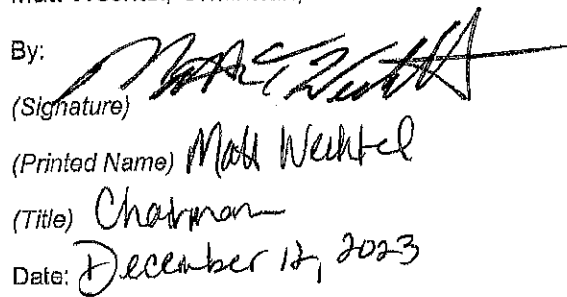 By:
(Signature)
(Printed Name) Matt Wechtel
(Title) Chairman
Date: December 12, 2023